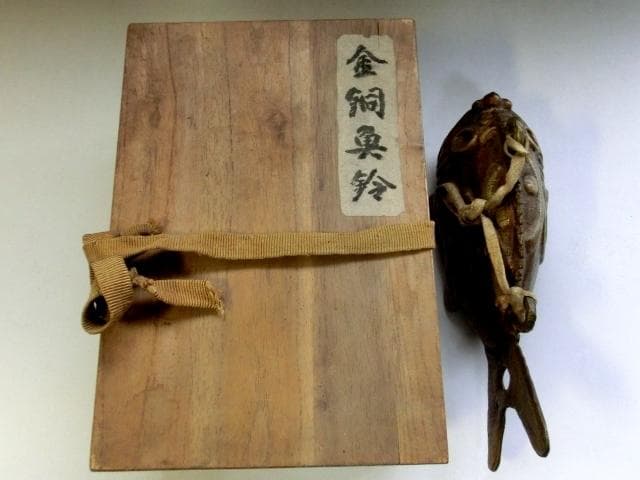 金銅魚鈴